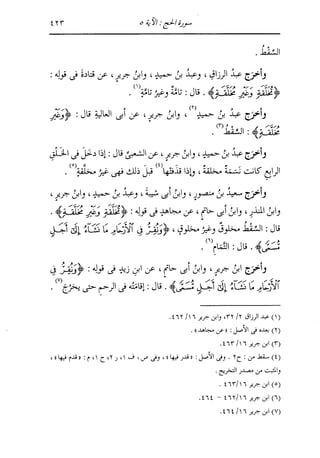 سورة الحج : الآية ٥ ٤٢٣
السِّقْطُ .
وأخرَج عبدُ الرزاقِ ، وعبدُ بنُ حميدٍ ، وابنُ جريرٍ ، عن قتادةَ في قولِه :
﴿مُخَلَّقَةٍ وَغَيْرِ مُخَلَّقَةٍ﴾ . قال : تامَّةٌ وغيرُ تامَّةٍ(١) .
وأخرَج عبدُ بنُ حميدٍ(٢) ، وابنُ جريرٍ ، عن أبي العاليةِ قال : ﴿وَغَيْرِ
مُخَلَّقَةٍ﴾ : السِّقْطُ(٣) .
وأخرَج عبدُ بنُ حميدٍ ، وابنُ جريرٍ ، عن الشعبيِّ قال : إذا دخَل في الخَلْقِ
الرابعِ كانت نَسَمَةً مخلقةً ، وإذا قذَفتْها(٤) قبلَ ذلك فهي غيرُ مخلقةٍ(٥) .
وأخرَج سعيدُ بنُ منصورٍ ، وابنُ أبي شيبةَ ، وعبدُ بنُ حميدٍ ، وابنُ جريرٍ ،
وابنُ المنذرِ ، وابنُ أبي حاتمٍ ، عن مجاهدٍ في قولِه : ﴿مُخَلَّقَةٍ وَغَيْرِ مُخَلَّقَةٍ﴾ .
قال : السِّقْطُ مخلوقٌ وغيرُ مخلوقٍ ، ﴿وَنُقِرُّ فِي ٱلْأَرْحَامِ مَا نَشَآءُ إِلَىٰٓ أَجَلٍ
مُّسَمًّى﴾ . قال : التَّمامُ(٦) .
وأخرَج ابنُ جريرٍ ، وابنُ أبي حاتمٍ ، عن ابنِ زيدٍ في قولِه : ﴿وَنُقِرُّ فِي
ٱلْأَرْحَامِ مَا نَشَآءُ إِلَىٰٓ أَجَلٍ مُّسَمًّى﴾ . قال : إقامتُه في الرحمِ حتى يخرُجَ(٧) .
(١) عبد الرزاق ٢/ ٣٢، وابن جرير ١٦/ ٤٦٢.
(٢) بعده في الأصل : «عن مجاهد» .
(٣) ابن جرير ١٦/ ٤٦٣.
(٤) سقط من : ح٢ . وفي الأصل : «قدر فيها» ، وفي ص ، ف١ ، ر٢ ، ح١ ، م : «قدم فيها» ،
والمثبت من مصدر التخريج .
(٥) ابن جرير ١٦/ ٤٦٣.
(٦) ابن جرير ١٦/ ٤٦٢ - ٤٦٤.
(٧) ابن جرير ١٦/ ٤٦٤.